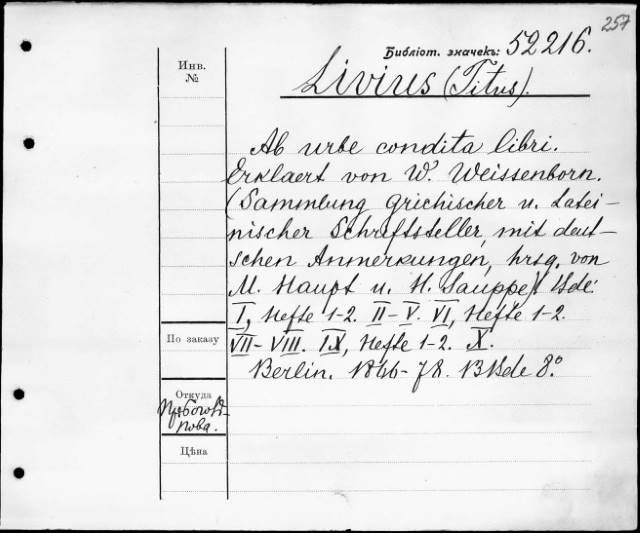 257
Библіот. значекъ: 52216.
Инв.
№
Livius (Titus).
Ab urbe condita libri.
Erklaert von W. Weissenborn.
(Sammlung Grichischer u. Latei-
nischer Schriftsteller, mit deut-
schen Anmerkungen, hrsg. von
M. Haupt u. H. Sauppe). Bde:
I, Hefte 1-2. II-V. VI, Hefte 1-2.
VII-VIII. IX, Hefte 1-2. X.
По заказу
Berlin. 1866-78. Bde 8.°
Откуда
Цѣна